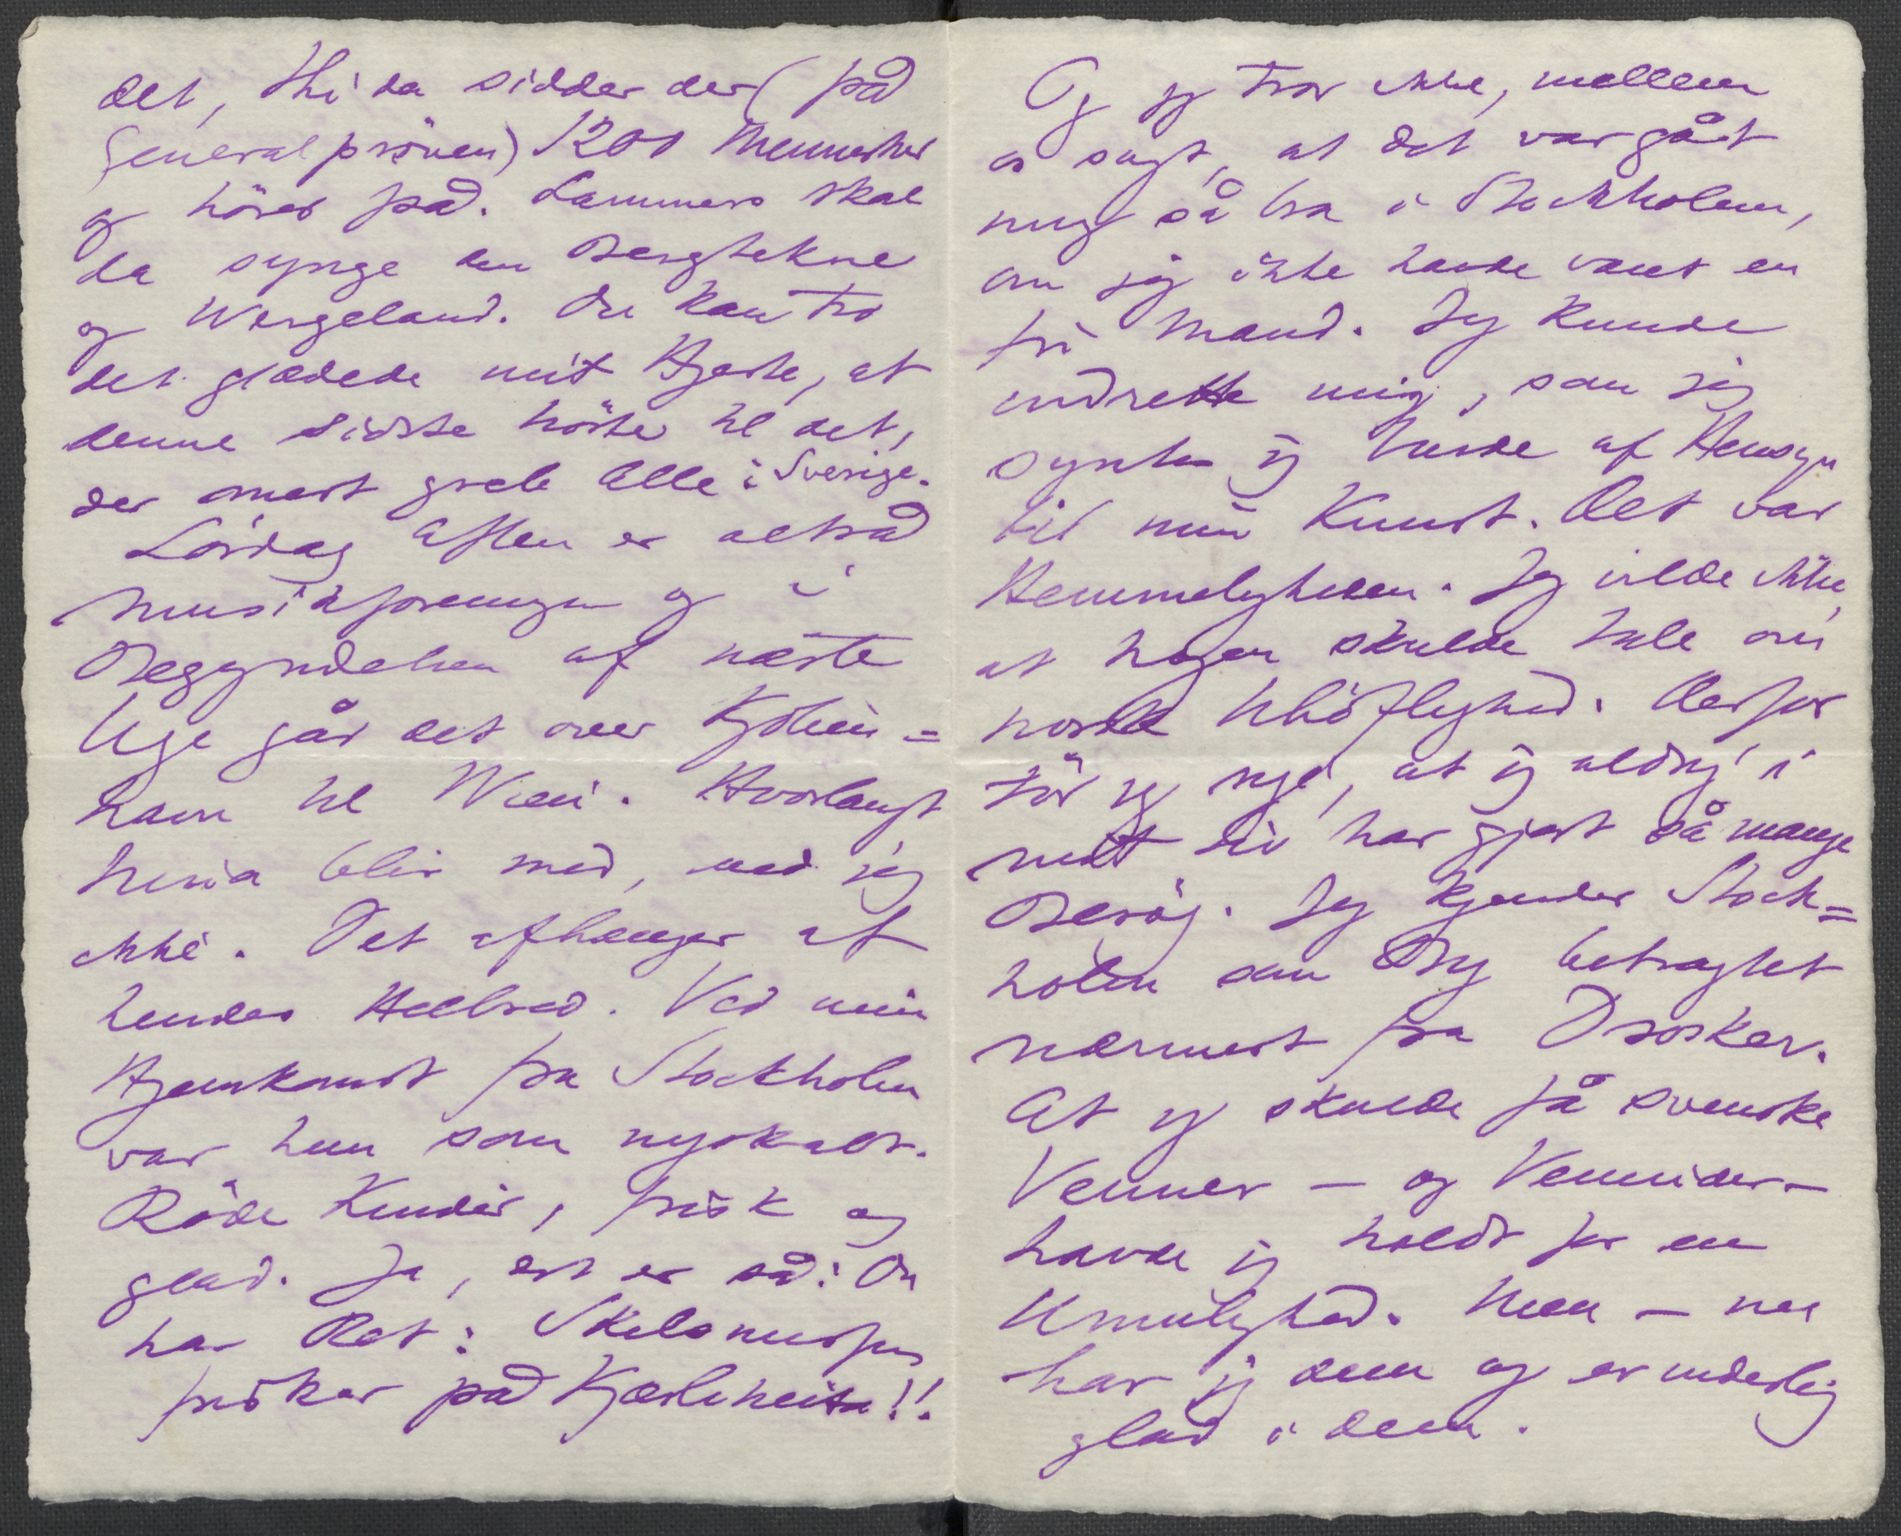 det, thi da sidder der (på
Generalprøven) 1200 Mennesker
og hører på. Lammers skal
da synge den Bergtekne
og Wergeland. Du kan tro
det glædede mit Hjerte, at
denne sidste hörte til det,
der mest greb Alle i Sverige.
Lördag Aften er altså
Musikforeningen og i
Begyndelsen af næste
Uge går det over Kjöben=
havn til Wien. Hvorlangt
Nina blir med, ved jeg
ikke. Det afhænger af
hendes Helbred. Ved min
Hjemkomst fra Stockholm
var hun som nyskabt.
Röde Kinder, frisk og
glad. Ja, det er så: Du
har Ret: Skilsmissen
frisker på Kjærligheden!!
Og jeg tror ikke, mellem
os sagt, at det var gåt
mig så bra i Stockholm,
om jeg ikke havde været en
fri Mand. Jeg kunde
indrette mig, som jeg
syntes jeg burde af Hensyn
til min Kunst. Det var
Hemmeligheden. Jeg vilde ikke,
at nogen skulde tale om
norsk Uhöflighed. Derfor
tör jeg sige, at jeg aldrig i
mit Liv har gjort så mange
Besög. Jeg kjender Stock=
holm som By betragtet
nærmest fra Drosker.
At jeg skulde få svenske
Venner – og Veninder –
havde jeg holdt for en
Umulighed. Men – nu
har jeg dem og er inderlig
glad i dem.